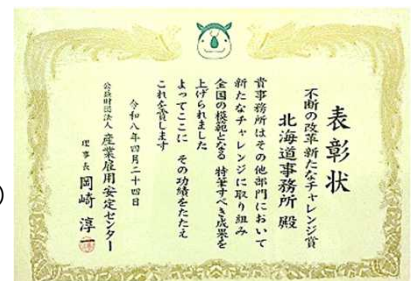 表彰状
不断の改革新たなチャレンジ賞
北海道事務所 殿
貴事務所はその他部門において
新たなチャレンジに取り組み
全国の模範となる特筆すべき成果を
上げられました
よってここに その功績をたたえ
これを賞します
令和八年四月二十四日
公益財団法人 産業雇用安定センター
理事長 岡崎 淳一
)